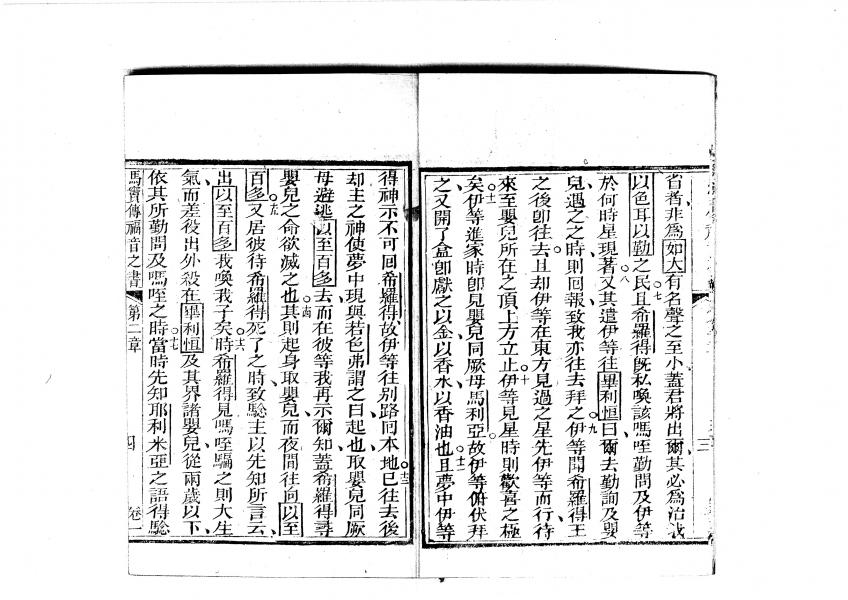 省者非爲如大有名聲之至小蓋君將出爾其必爲治我
以色耳以勤之民且七希羅得既私喚該嗎咥勤問及伊等
於何時星現著八又其遣伊等往畢利恒曰爾去勤詢及嬰
兒遇之之時則回報致我亦往去拜之九伊等聞希羅得王
之後卽往去且却伊等在東方見過之星先伊等而行待
來至嬰兒所在之頂上方立止十伊等見星時則歡喜之極
矣十一伊等進家時卽見嬰兒同厥母馬利亞故伊等俯伏拜
之又開了盒卽獻之以金以香水以香油也十二且夢中伊等
得神示不可回希羅得故伊等往别路回本地十三已往去後
却主之神使夢中現與若色弗謂之曰起也取嬰兒同厥
母避逃以至百多去而在彼等我再示爾知蓋希羅得尋
嬰兒之命欲滅之也十四其則起身取嬰兒而夜間往向以至
百多十五又居彼待希羅得死了之時致騐主以先知所言云
出以至百多我喚我子矣十六時希羅得見嗎咥騙之則大生
氣而差役出外殺在畢利恒及其界諸嬰兒從兩歲以下
依其所勤問及嗎咥之時十七當時先知耶利米亞之語得騐
馬竇傳福音之書 第二章 四 卷一